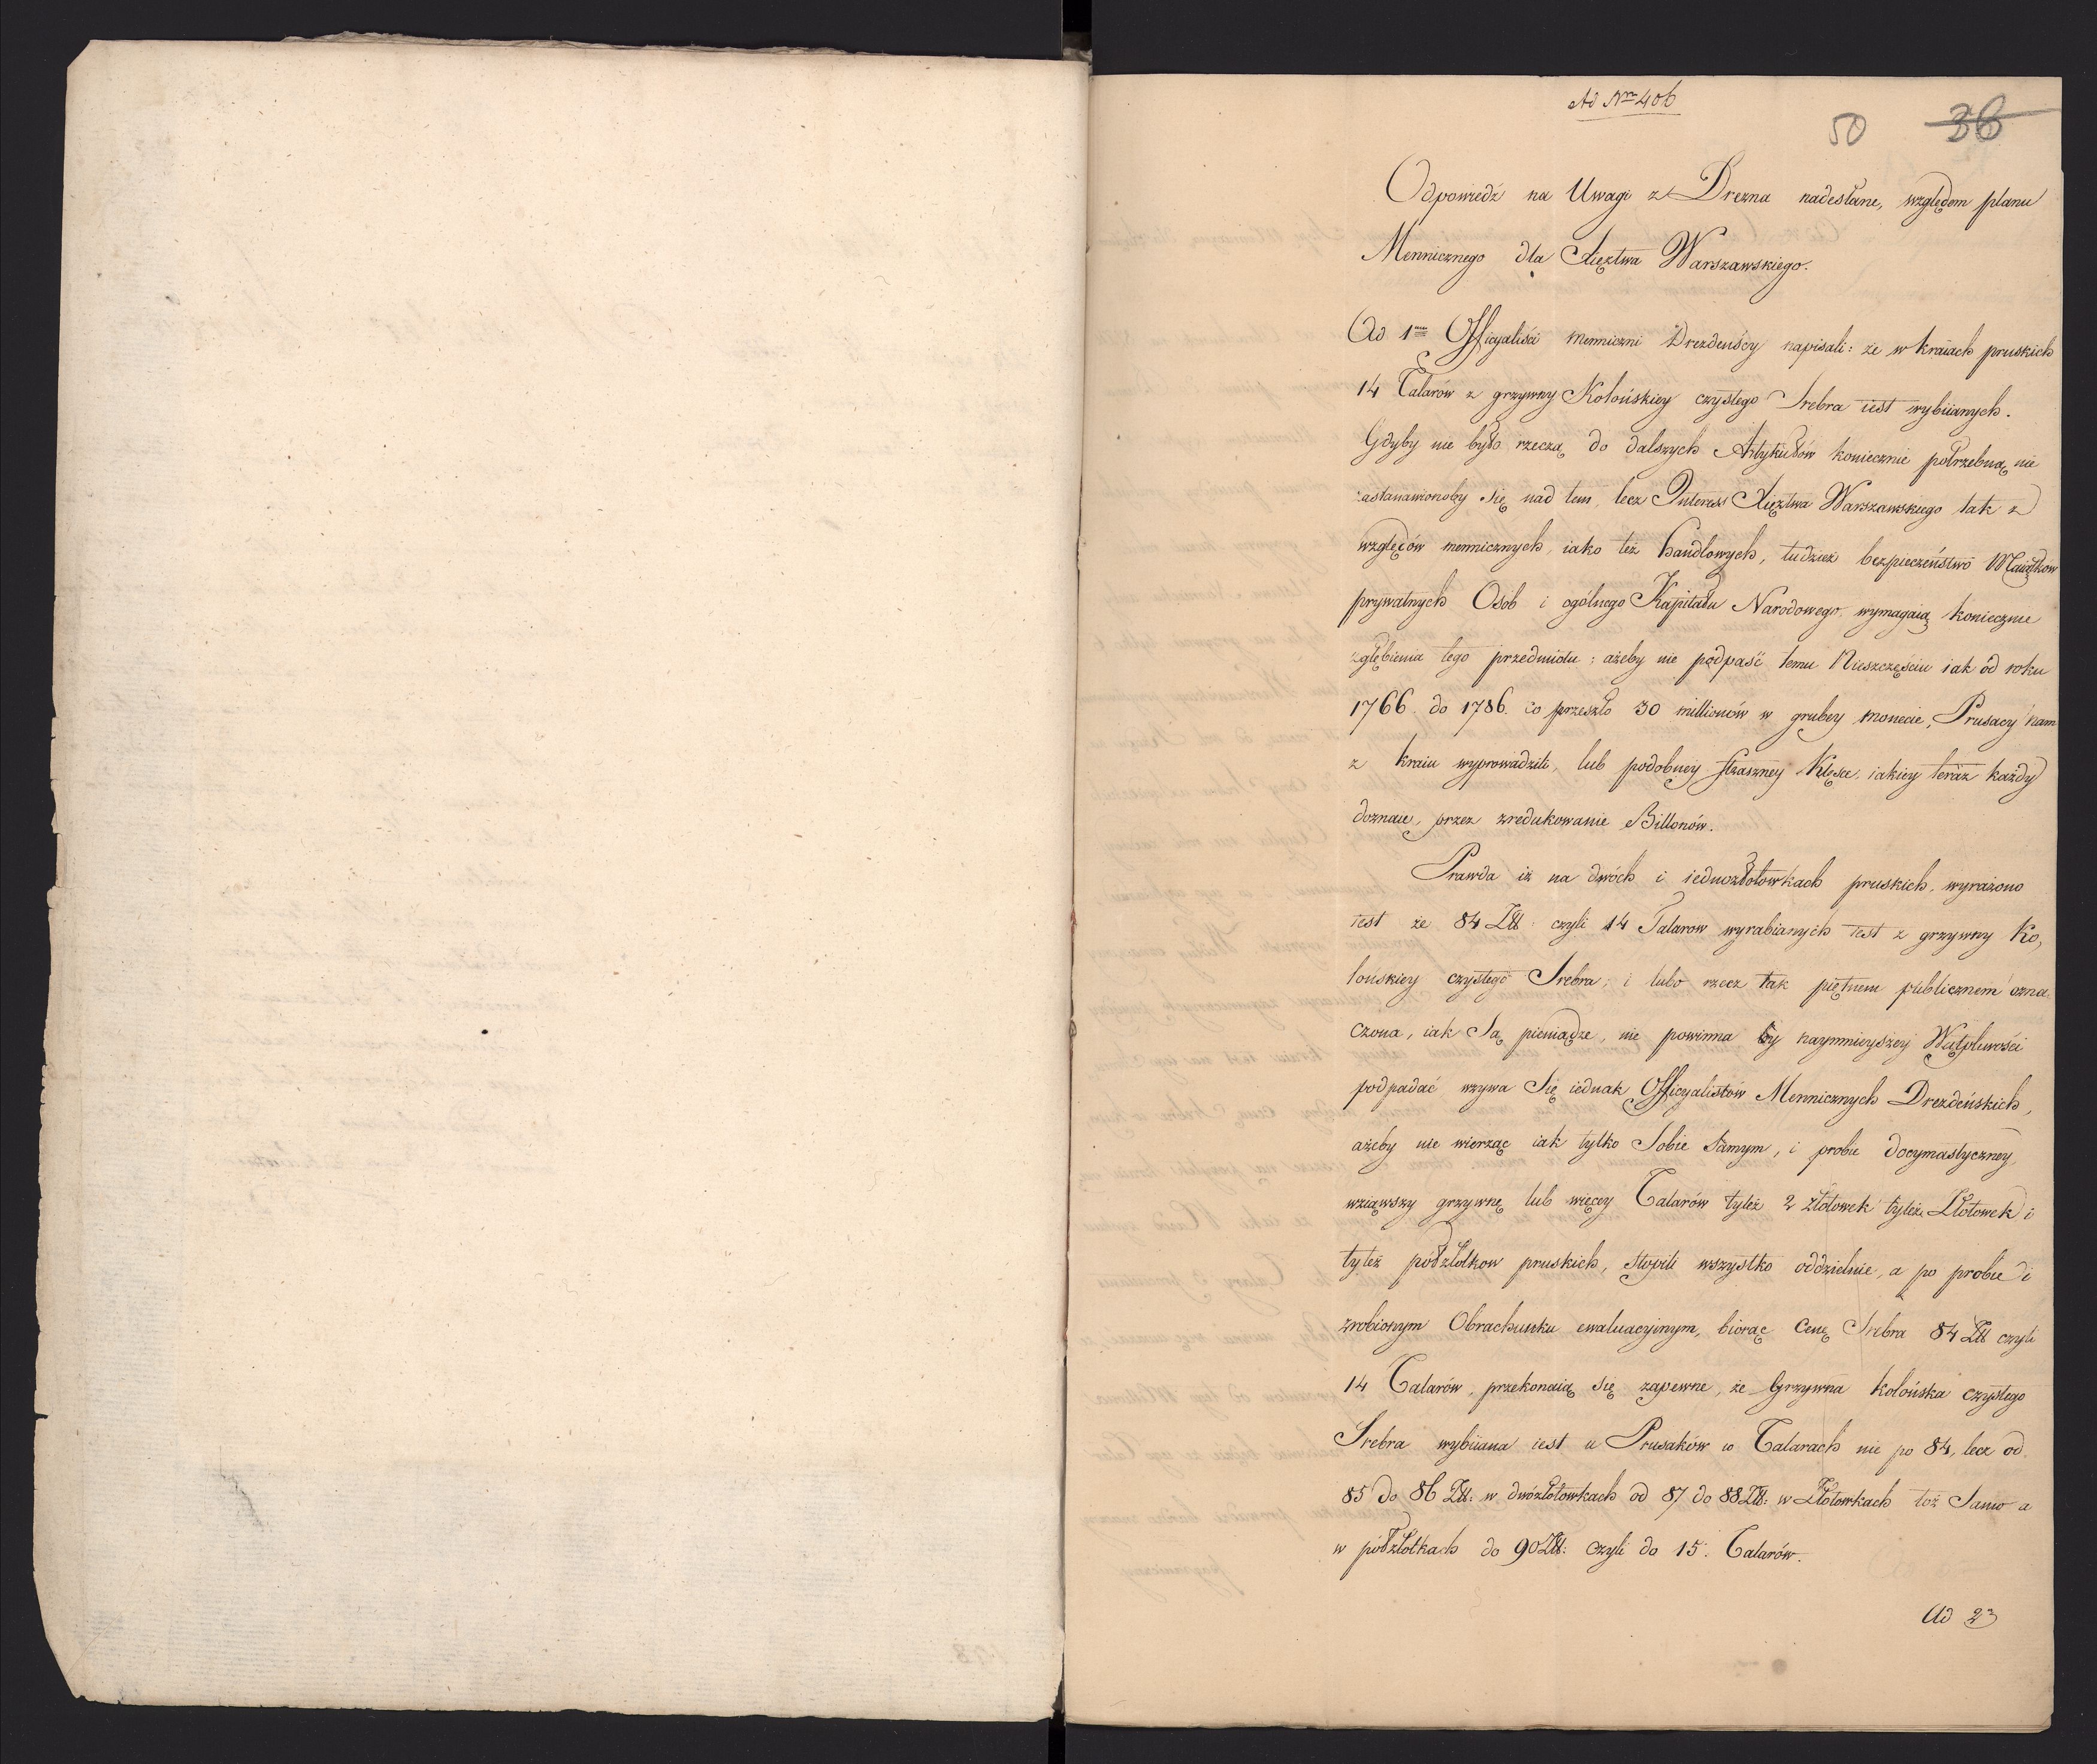 Ad Nrm 406
50 36
Odpowiedź na Uwagi z Drezna nadesłane, względem planu
Mennicznego dla Xięztwa Warszawskiego.
Ad 1mum Officyaliści menniczni Drezdeńscy napisali: że w kraiach pruskich
14 Talarów z grzywny Kolońskiey czystego Srebra iest wybiianych.
Gdyby nie było rzeczą do dalszych Artykułów koniecznie potrzebną nie
zastanawionoby się nad tem, lecz Interess Xięztwa Warszawskiego tak z
względów mennicznych, iako też handlowych, tudzież bezpieczeństwo Maiątkow
prywatnych Osób i ogólnego Kapitału Narodowego, wymagaią koniecznie
zgłębienia tego przedmiotu; ażeby nie podpaść temu Nieszczęściu iak od roku
1766 do 1786. co przeszło 30 millionów w grubey monecie, Prusacy nam
z kraiu wyprowadzili, lub podobney straszney Klęsce, iakiey teraz każdy
doznaie, przez zredukowanie Billonów.
Prawda iż na dwóch i iednozłotowkach pruskich, wyrażono
iest że 84 Złł czyli 14 Talarow wyrabianych iest z grzywny Ko,
lońskiey czystego Srebra; i lubo rzecz tak piętnem publicznem ozna,
czona, iak Są pieniądze, nie powinna by naymnieyszey Wątpliwości
podpadać wzywa Się iednak Officyalistów Mennicznych Drezdeńskich,
ażeby nie wierząc iak tylko Sobie Samym, i probie docymastyczney,
wziąwszy grzywnę lub więcey Talarów tyleż 2 złotowek tyleż Złotowek i
tyleż półzłotkow pruskich, stopili wszystko oddzielnie, a po probie i
zrobionym Obrachunku ewaluacyinym, biorąc Cenę Srebra 84 Złł czyli
14 Talarów, przekonaią się zapewne, że Grzywna kolońska czystego
Srebra wybiiana iest u Prusaków w Talarach nie po 84, lecz od
85 do 86 Złł: w dwózłotowkach od 87 do 88 Złł: w Złotowkach toż Samo a
w półzłotkach do 90 Złł: czyli do 15. Talarów.
Ad 2